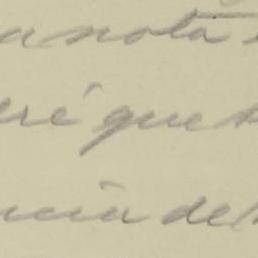 a nota
eré que
ncia de